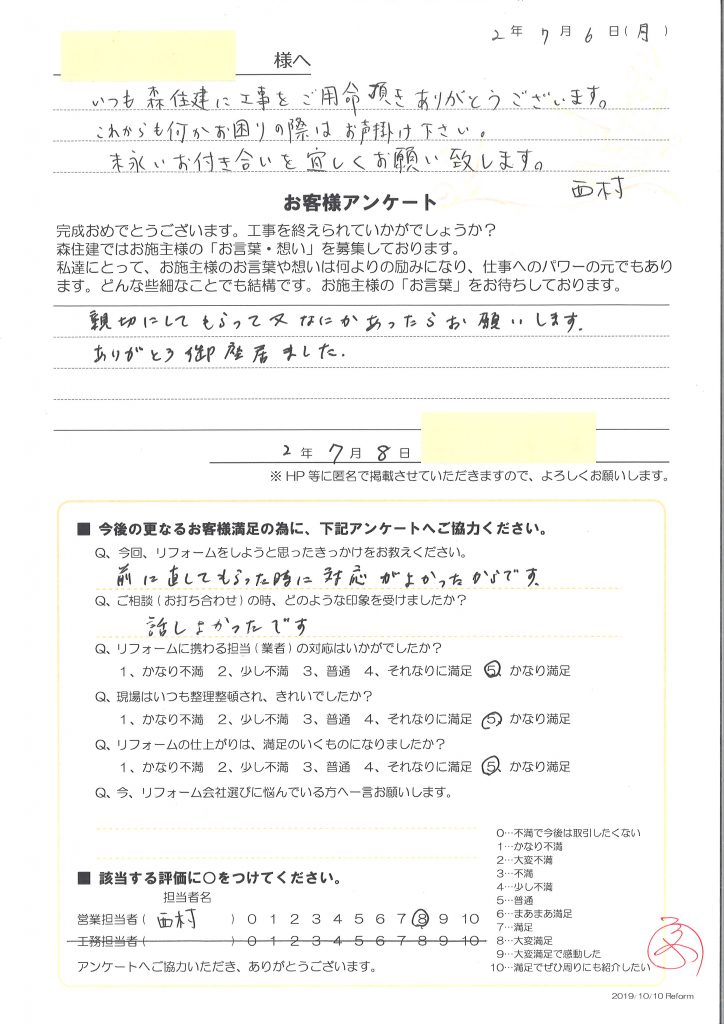 2年 7月 6日(月)
様へ
いつも森住建に工事をご用命頂きありがとうございます。
これからも何かお困りの際はお声掛け下さい。
末永いお付き合いを宜しくお願い致します。
西村
お客様アンケート
完成おめでとうございます。工事を終えられていかがでしょうか?
森住建ではお施主様の「お言葉・想い」を募集しております。
私達にとって、お施主様のお言葉や想いは何よりの励みになり、仕事へのパワーの元でもあり
ます。どんな些細なことでも結構です。お施主様の「お言葉」をお待ちしております。
親切にしてもらって又なにかあったらお願いします.
ありがとう御座居ました.
2年 7月 8日
※HP等に匿名で掲載させていただきますので、よろしくお願いします。
■ 今後の更なるお客様満足の為に、下記アンケートへご協力ください。
Q、今回、リフォームをしようと思ったきっかけをお教えください。
前に直してもらった時に対応がよかったからです.
Q、ご相談(お打ち合わせ)の時、どのような印象を受けましたか?
話しよかったです
Q、リフォームに携わる担当(業者)の対応はいかがでしたか?
1、かなり不満 2、少し不満 3、普通 4、それなりに満足 5、かなり満足
Q、現場はいつも整理整頓され、きれいでしたか?
1、かなり不満 2、少し不満 3、普通 4、それなりに満足 5、かなり満足
Q、リフォームの仕上がりは、満足のいくものになりましたか?
1、かなり不満 2、少し不満 3、普通 4、それなりに満足 5、かなり満足
Q、今、リフォーム会社選びに悩んでいる方へ一言お願いします。
0…不満で今後は取引したくない
1…かなり不満
2…大変不満
3…不満
4…少し不満
5…普通
6…まあまあ満足
7…満足
8…大変満足
9…大変満足で感動した
10…満足でぜひ周りにも紹介したい
■ 該当する評価に○をつけてください。
担当者名
営業担当者( 西村 ) 0 1 2 3 4 5 6 7 8 9 10
工務担当者( ) 0 1 2 3 4 5 6 7 8 9 10
アンケートへご協力いただき、ありがとうございます。
2019/10/10 Reform